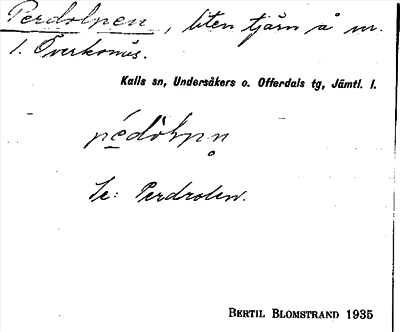 Perdolpen, liten tjärn å nr.
1. Överkonäs.
Kalls sn, Undersåkers o. Offerdals tg, Jämtl. l.
Se: Perdrolen.
BERTIL BLOMSTRAND 1935